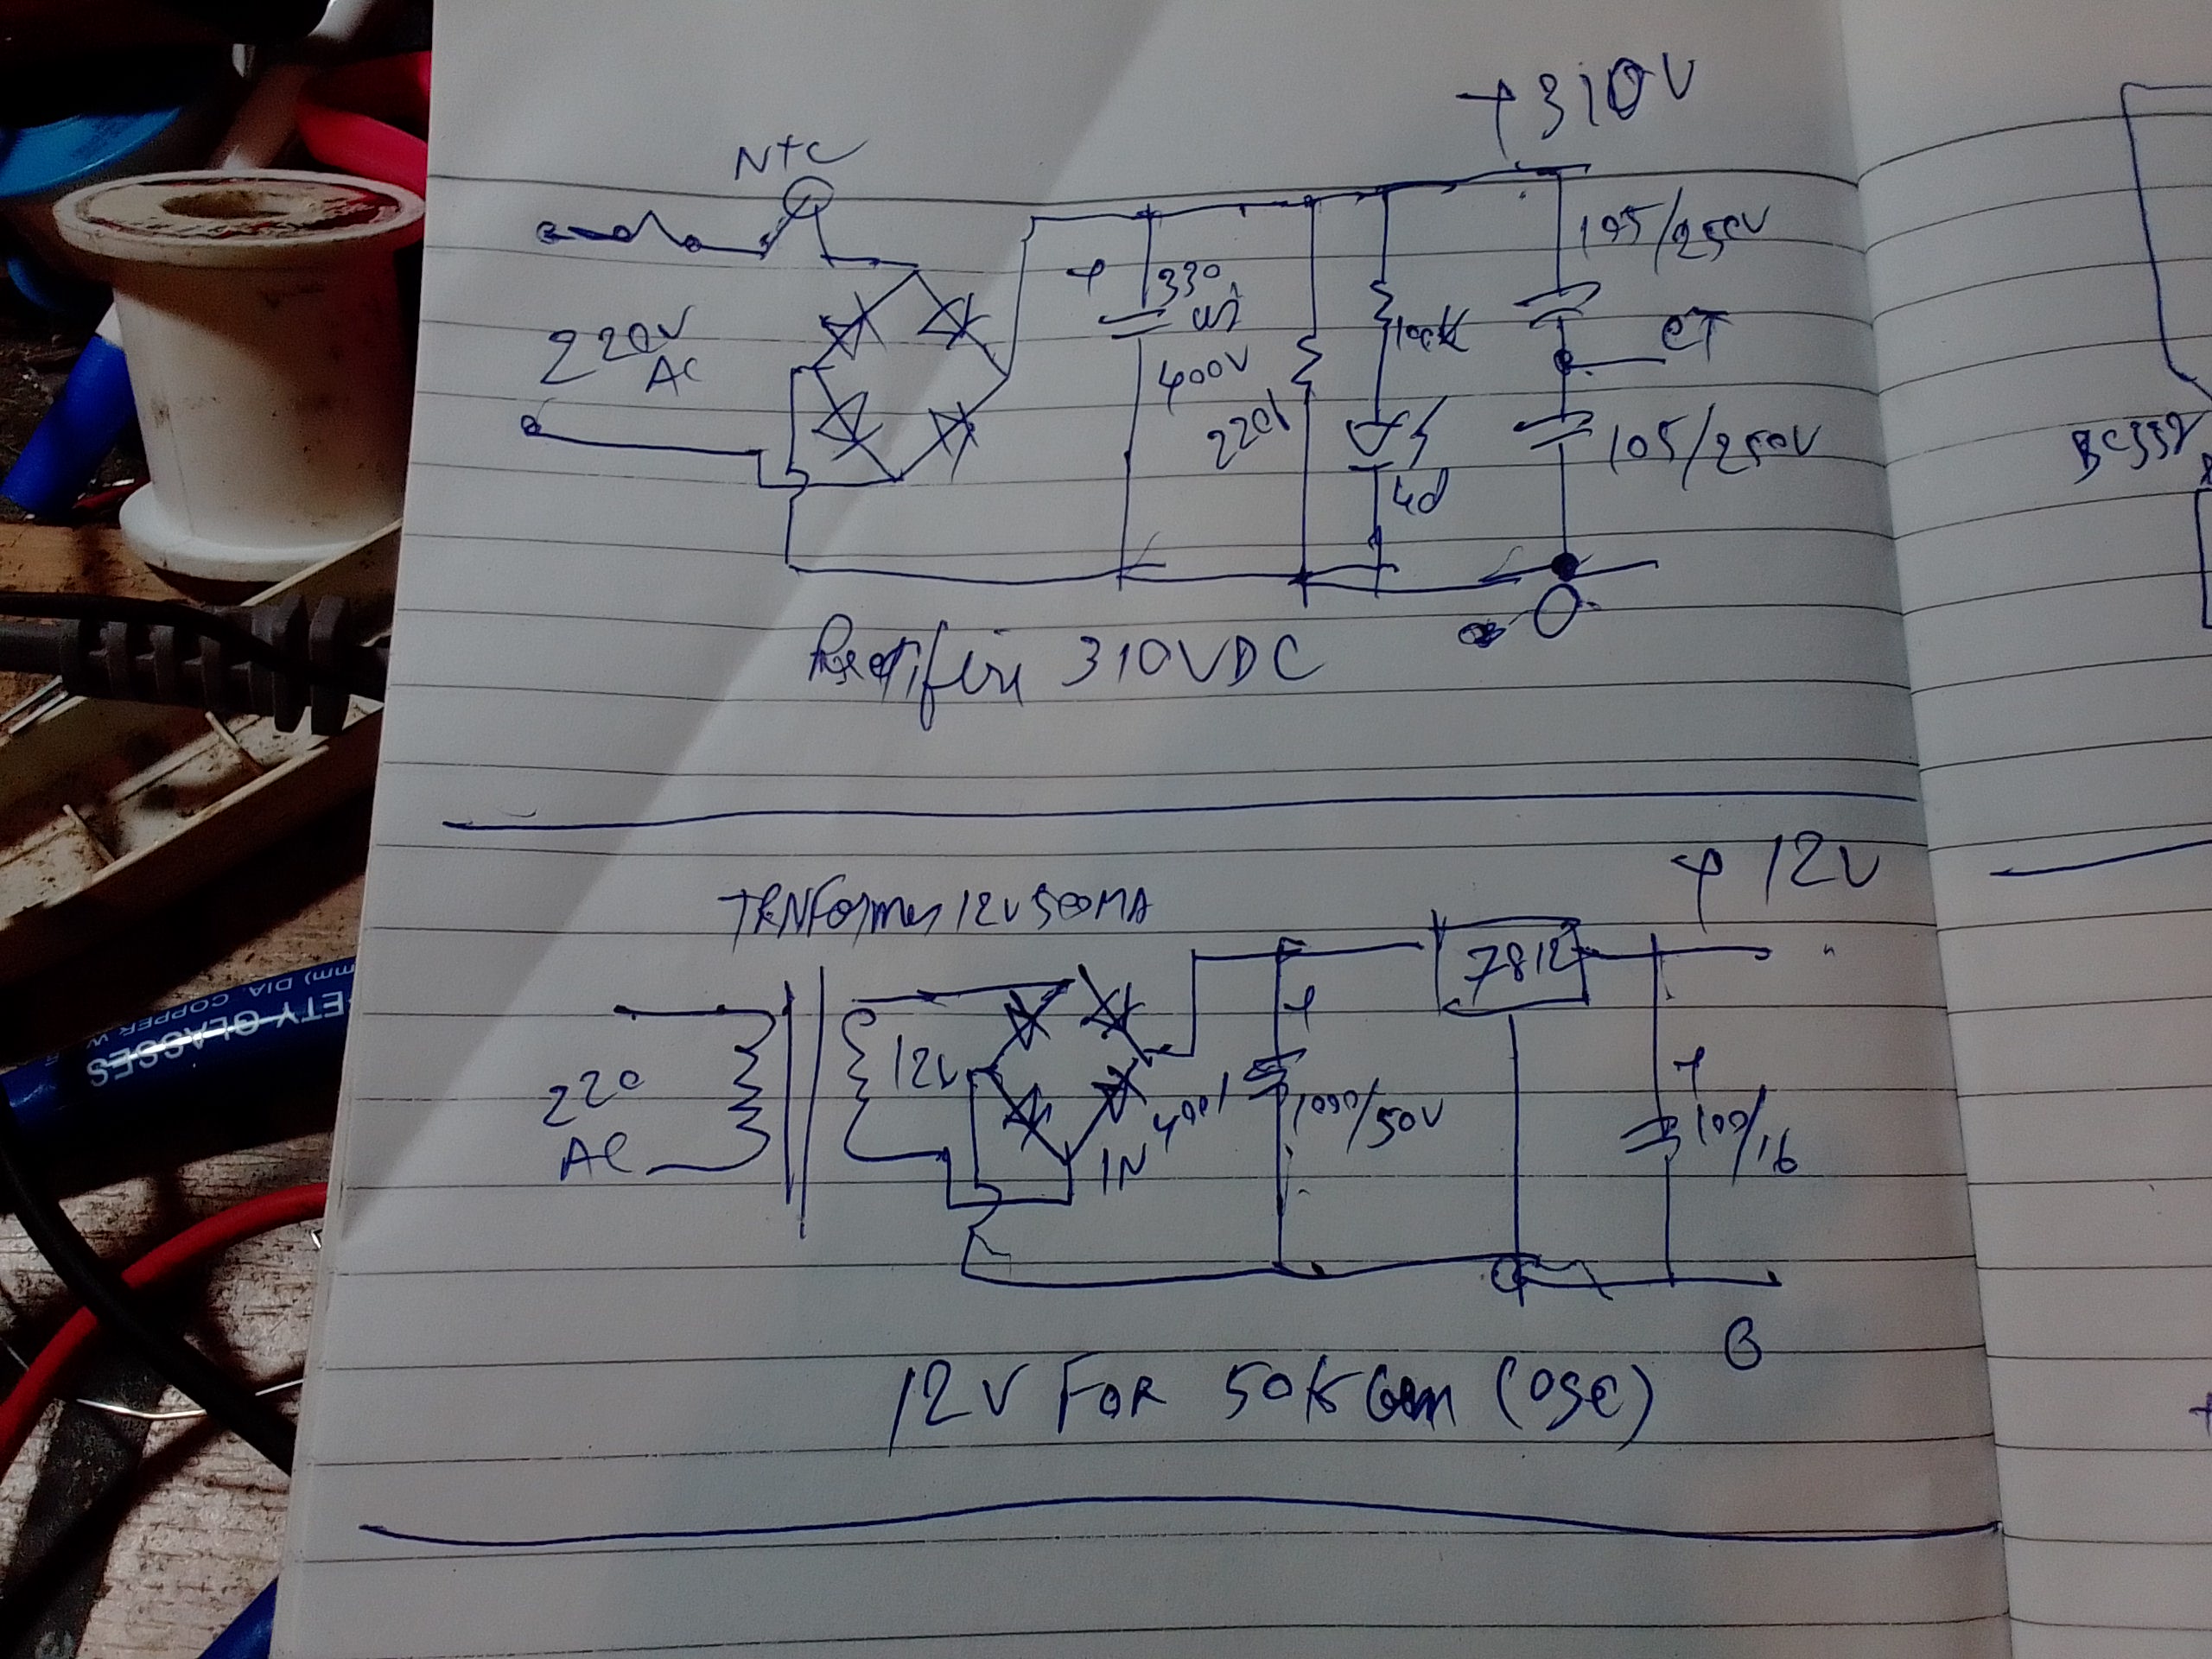 +310V
NTC
105/250V
220V
AC
+ 330
400V
100K
CT
105/250V
BC557
Rectifire 310VDC
+ 12V
TRNFormer 12V 500MA
7812
12V
220
AC
+
+
4001
1000/50V
100/16
IN
12V FOR 50K Gen (OSC)
SETY GLASSES
mm) DIA. COPPER W